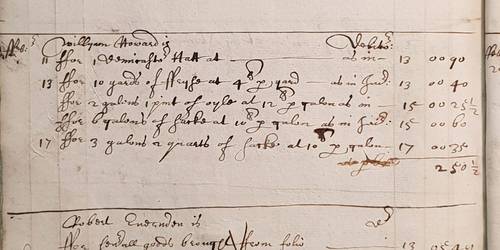 William Howard is Debitor:
11 ffor 1 demicaster Hatt at — as in — 13 00 90
13 ffor 10 yards of ffryse at 4 p yard — as in 13 00 40
ffor 2 galons 1 pint of oyle at 12 p galon as in — 15 00 25½
ffor 6 galons of sacke at 10 p galon as in 15 00 60
17 ffor 3 galons 2 quarts of sacke at 10 p galon 17 00 35
250½
Robert is
ffor goods from folio 13